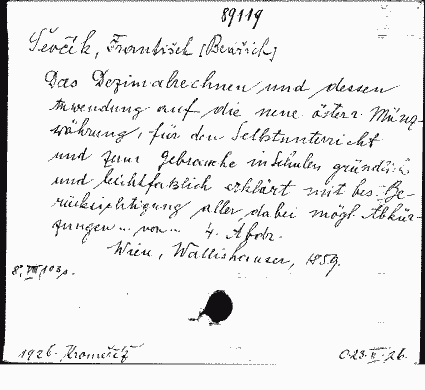 89119
Ševčík, František [Bedřich]
Das Dezimalrechnen und dessen
Anwendung auf die neue österr. Münz-
währung, für den Selbstunterricht
und zum Gebrauche in Schulen gründlich
und leichtfasslich erklärt mit bes. Be-
rücksichtigung aller dabei mögl. Abkür-
zungen ... von ... 4. Abdr.
Wien, Wallishausser, 1859.
8°. VIII, 103 s.
1926. Kroměříž O.23.II.26.